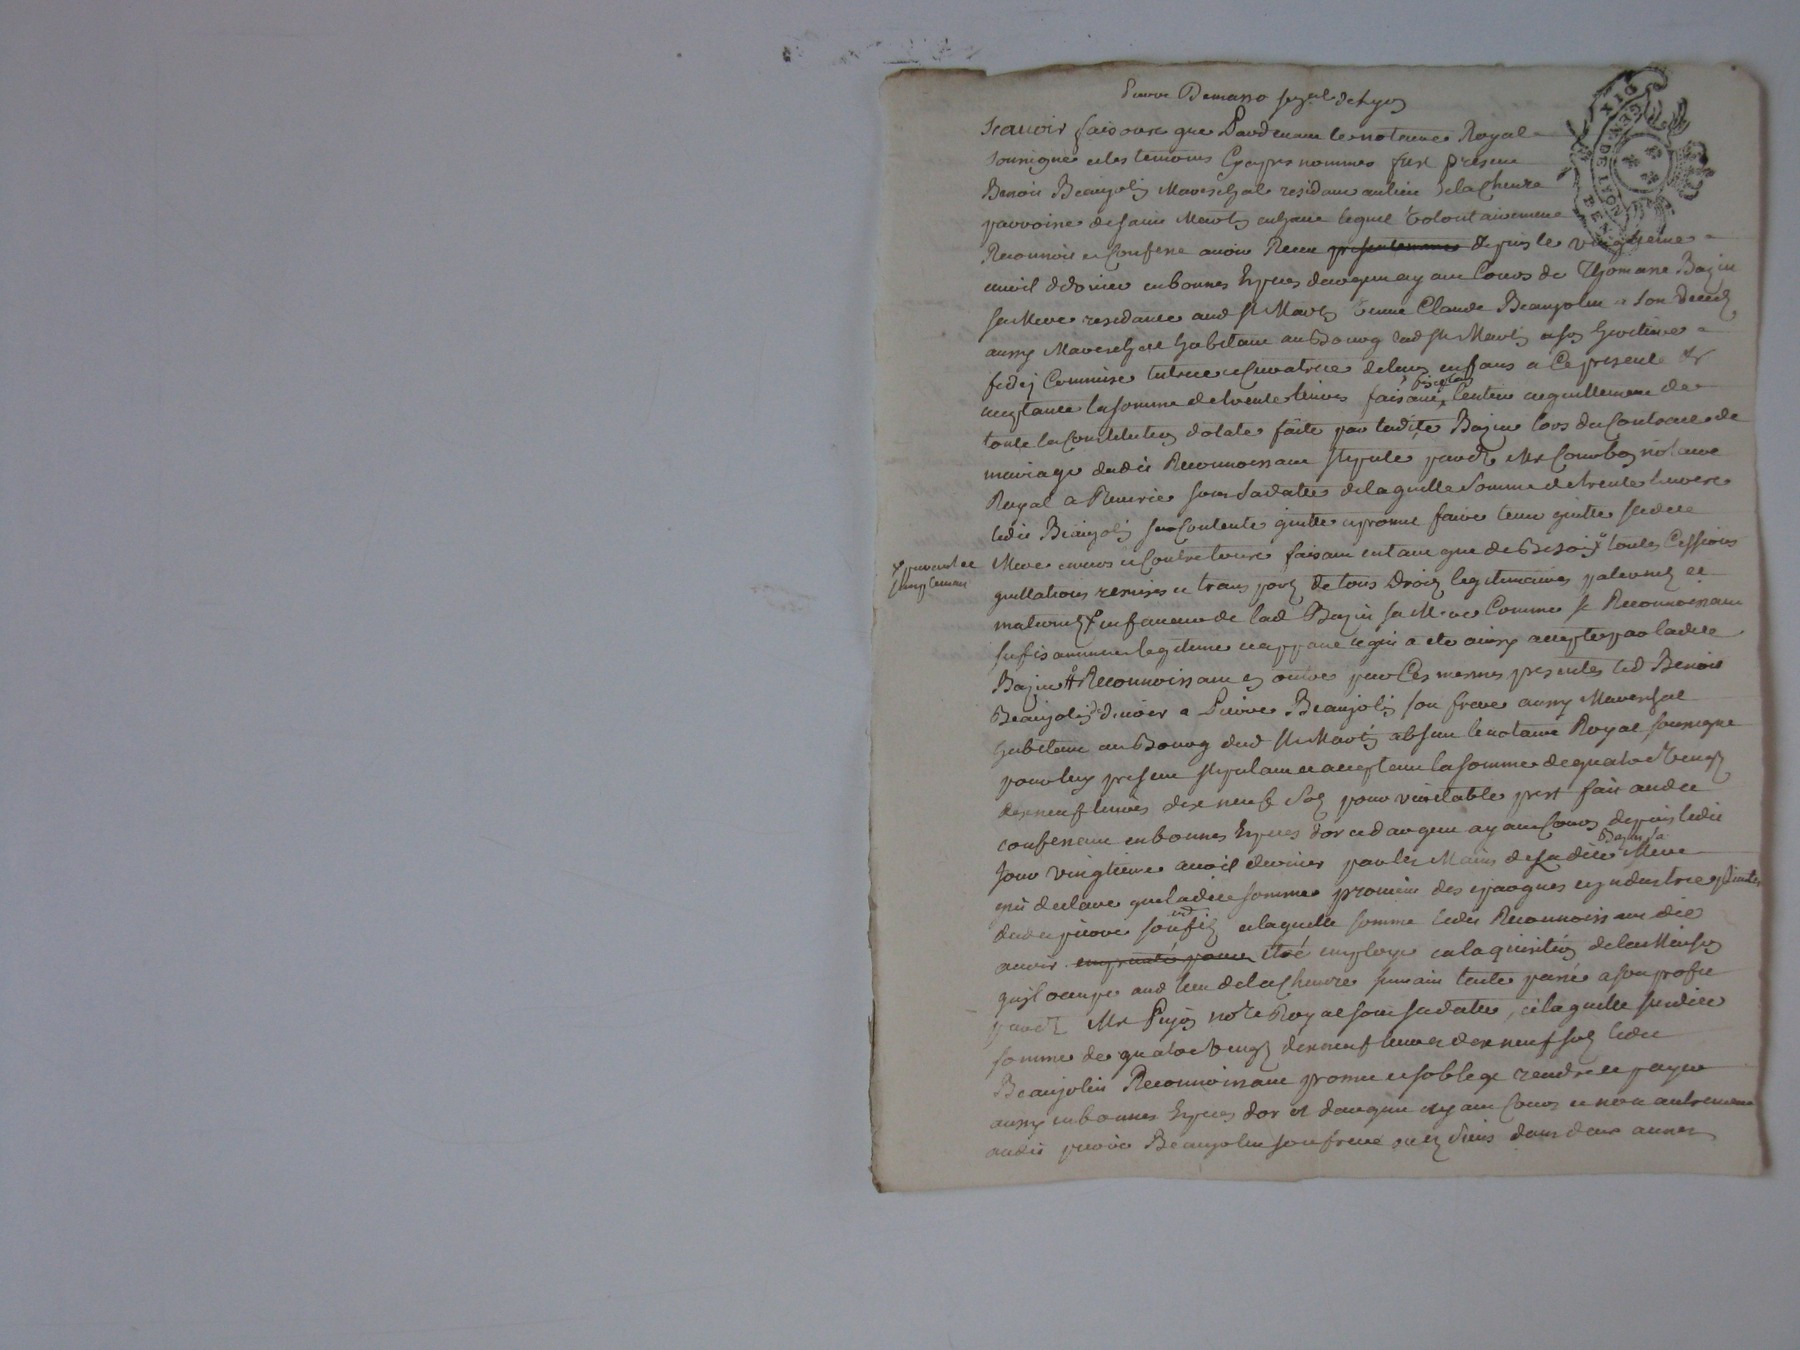 Sçauoir faisons que Pardeuant le notaire Royal
soussigné et les temoins Cyapres nommes fust present
Benoit Beaujolin Mareschal residant au lieu de la Cheure
parroisse de saint Martin lequel volontairement
Reconnoit et Confesse auoir Receu presentement depuis le vingtieme
auril dernier en bonnes Especes d'argent ayant Cours de Thomasse Bazin
sa Mere residante aud St Martin veuue Claude Beaujolin a son deceds
aussy Mareschal habitant au Bourg dud St Martin et son heritiere
fideij Commise tutrice et Curatrice de leurs enfans a Ce presente et
acceptante la somme de trente liures faisant l'entier acquittement de
toute la Constitution dotale faite par ladite Bazin lors du Contract de
mariage dudit Reconnoissant stipulé pardt Me Courbon notaire
Royal a Riuerie sous sa datte de laquelle somme de trente liures
ledit Beaujolin se Contente quitte et promet faire tenir quitte sadite
Mere enuers et Contre tous faisant en tant que de Besoin toutes Cessions
x purement et
simplement
quittations remises et transports de tous Droits legitimaires paternels et
maternels x en faueur de lad Bazin sa Mere Comme se Reconnoissant
sufisamment legitimé et apparié ce qui a eté ainsy accepté par ladite
Bazin # Reconnoissant en outre par Ces mesmes presentes led Benoit
Beaujolin deuoir a Pierre Beaujolin son frere aussy Mareschal
habitant au Bourg dud St Martin absent le notaire Royal soussigné
pour luy present stipulant et acceptant la somme de quatre Vingt
dixneuf liures dixneuf sols pour veritable prest fait audit
confessant en bonnes Especes d'or et d'argent ayant Cours depuis ledit
Jour vingtieme auril dernier par les Mains de ladite Bazin sa Mere
qui declare que ladite somme prouient des epargnes et yndustrie
dudit pierre son fils de laquelle somme ledit Reconnoissant dit
auoir employé en l'aquisition de la Maison
qu'il occupe aud lieu de la Cheure suiuant l'acte passé a son profit
pardt Me Pujon nore Royal sous sa datte, et laquelle susdite
somme de quatre Vingt dixneuf liures dixneuf sols ledit
Beaujolin Reconnoissant promet et s'oblige rendre et payer
aussy en bonnes Especes d'or et d'argent ayant Cours et non autrement
audit pierre Beaujolin son frere ou es siens dans deux années